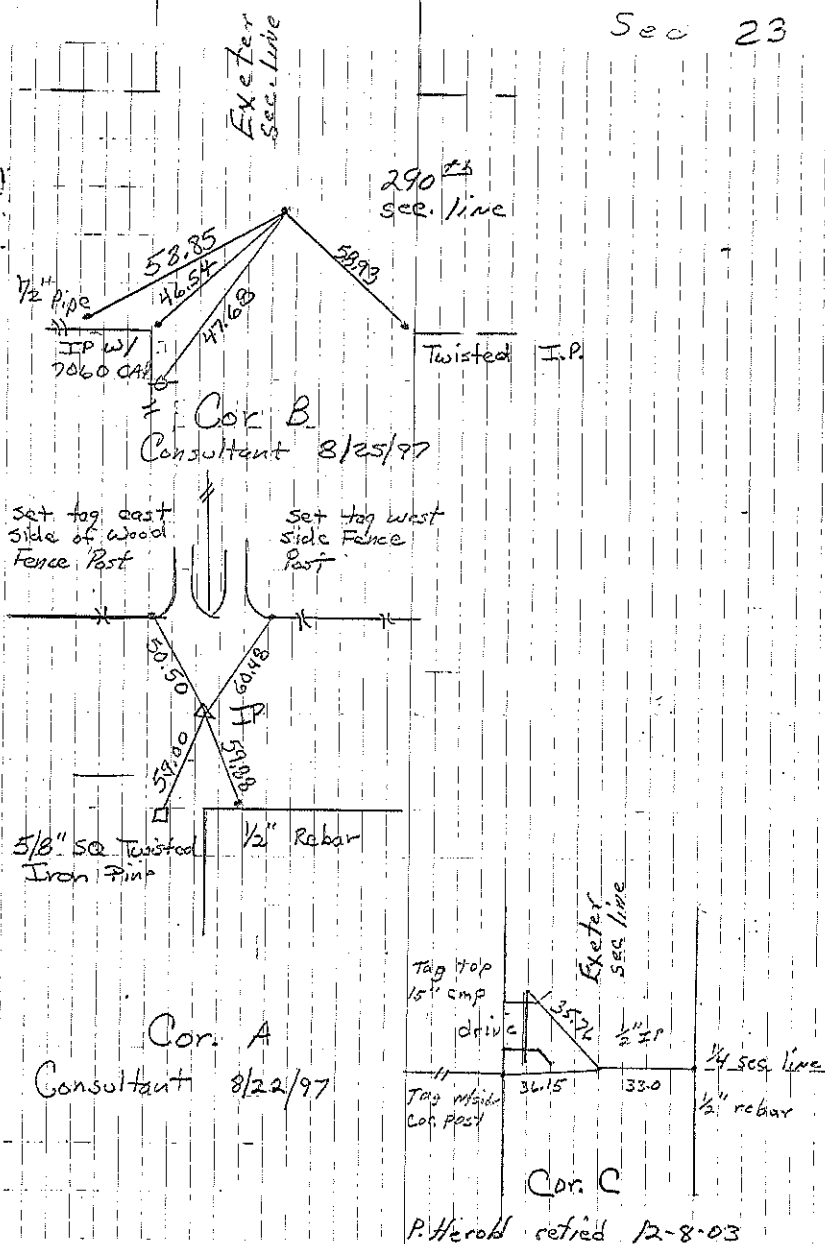 Sec 23
Exeter
sec. line
290 th
sec. line
58.85
46.54
47.68
58.93
1/2" Pipe
IP W/
7060 CAP
Twisted I.P.
Cor. B
Consultant 8/25/97
set tag east
side of wood
Fence Post
set tag west
side Fence
Post
50.50
60.48
IP
59.00
59.88
5/8" SQ Twisted
Iron Pin
1/2" Rebar
Cor. A
Consultant 8/22/97
Exeter
sec line
Tag top
15" cmp
drive
35.76
1/2" IP
1/4 sec line
36.15
33.0
1/2" rebar
Tag n/side
Cor. post
Cor. C
P. Herold retied 12-8-03